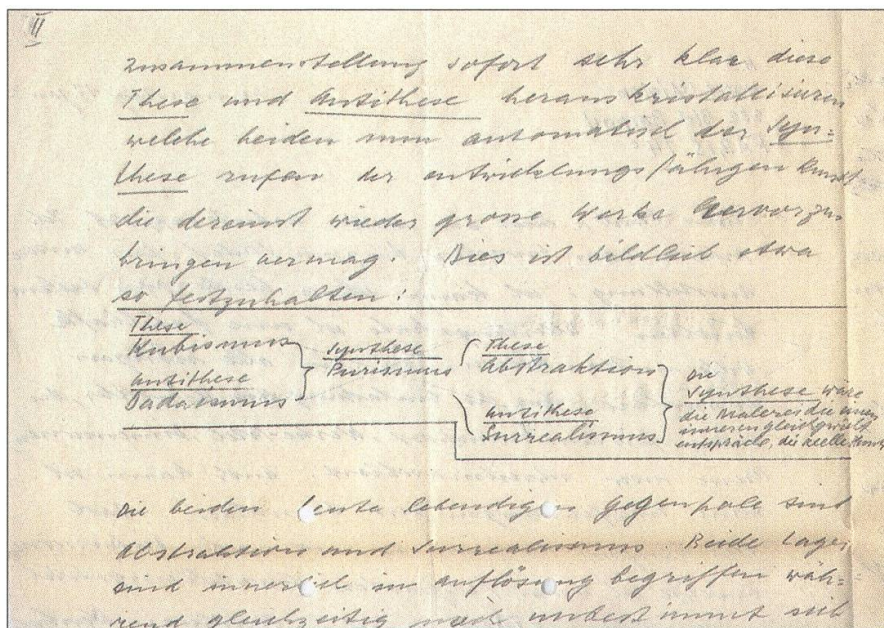 II
Zusammenstellung sofort sehr klar diese
These und Antithese herauskristallisieren
welche beiden nun automatisch der Syn=
these rufen der entwicklungsfähigen Kunst
die dereinst wieder grosse Werke hervorzu-
bringen vermag. Dies ist bildlich etwa
so festzuhalten:
These
Kubismus
Antithese
Dadaismus
Synthese
Purismus
These
Abstraktion
Antithese
Surrealismus
Die
Synthese wäre
die Malerei die einem
inneren Gleichgewicht
entspräche, die reelle Kunst
Die beiden heute lebendigen Gegenpole sind
Abstraktion und Surrealismus. Beide Lager
sind innerlich in Auflösung begriffen wäh-
rend gleichzeitig noch unbestimmt sich